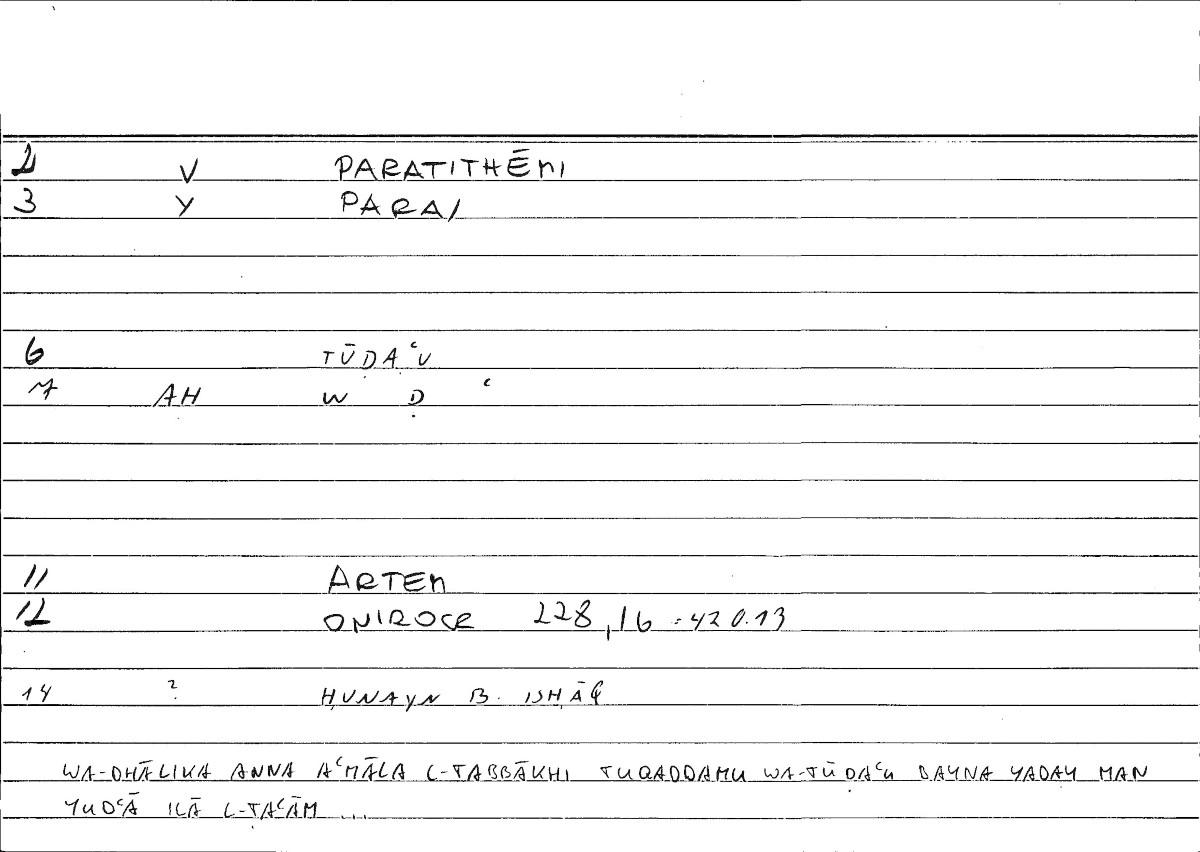 2 V PARATITHĒMI
3 Y PARA/
6 TŪḌAʿU
7 AH W Ḍ ʿ
11 ARTEM
12 ONIROCR 228,16 = 420.13
14 ? ḤUNAYN B. ISḤĀQ
WA-DHĀLIKA ANNA AʿMĀLA L-TABBĀKHI TUQADDAMU WA-TŪḌAʿU BAYNA YADAY MAN
YUDʿĀ ILĀ L-ṬAʿĀM ...